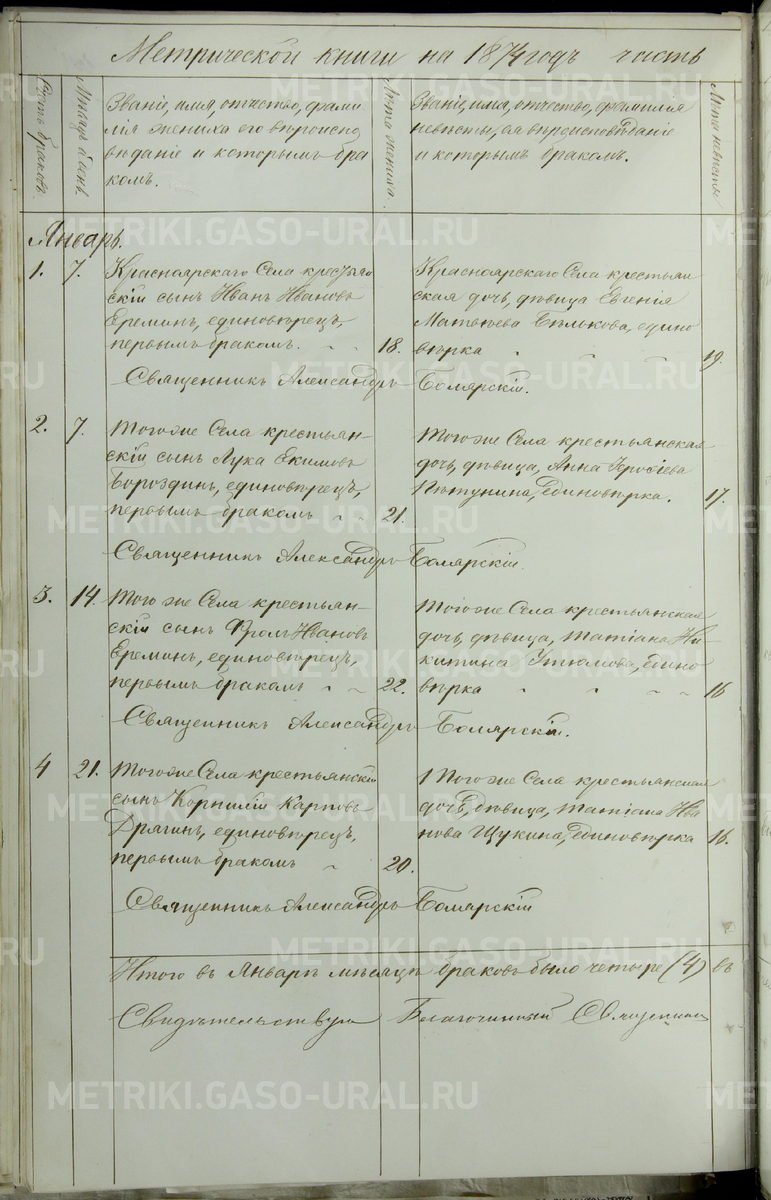 Метрической книги на 1874 годъ часть
Счетъ браковъ.
Мѣсяцъ и день.
Званіе, имя, отчество, фами
лія жениха его вѣроиспо
вѣданіе и которымъ бра
комъ.
Лѣта жениха.
Званіе, имя, отчество, фамилія
невѣсты, ея вѣроисповѣданіе
и которымъ бракомъ.
Лѣта невѣсты
Январь.
1. 7. Красноярскаго Села крестьян
скій сынъ Иванъ Ивановъ
Ереминъ, единовѣрецъ,
первымъ бракомъ. 18.
Красноярскаго Села крестьян
ская дочь, дѣвица Евгенія
Матвѣева Бѣлькова, едино
вѣрка 19.
Священникъ Александръ Боярскій.
2. 7. Тогоже Села крестьян-
скій сынъ Лука Екимовъ
Бороздинъ, единовѣрецъ,
первымъ бракомъ 21.
Тогоже Села крестьянская
дочь, дѣвица, Анна
Пѣтунина, Единовѣрка. 17.
Священникъ Александръ Боярскій.
3. 14. Того же Села крестьян-
скій сынъ Фролъ Ивановъ
Ереминъ, единовѣрецъ,
первымъ бракомъ 22.
Тогоже Села крестьянская
дочь, дѣвица, Татіана Ни-
китина Утюмова, едино
вѣрка 16
Священникъ Александръ Боярскій.
4 21. Тогоже Села крестьянскій
сынъ Корнилій Карповъ
Дрягинъ, единовѣрецъ,
первымъ бракомъ 20.
Того же Села крестьянская
дочь, дѣвица, Татіана Ива
нова Щукина, Единовѣрка 16.
Священникъ Александръ Боярскій
Итого въ Январѣ мѣсяцѣ браковъ было четыре (4) въ
Свидѣтельствую Благочинный Священникъ
METRIKI.GASO-URAL.RU